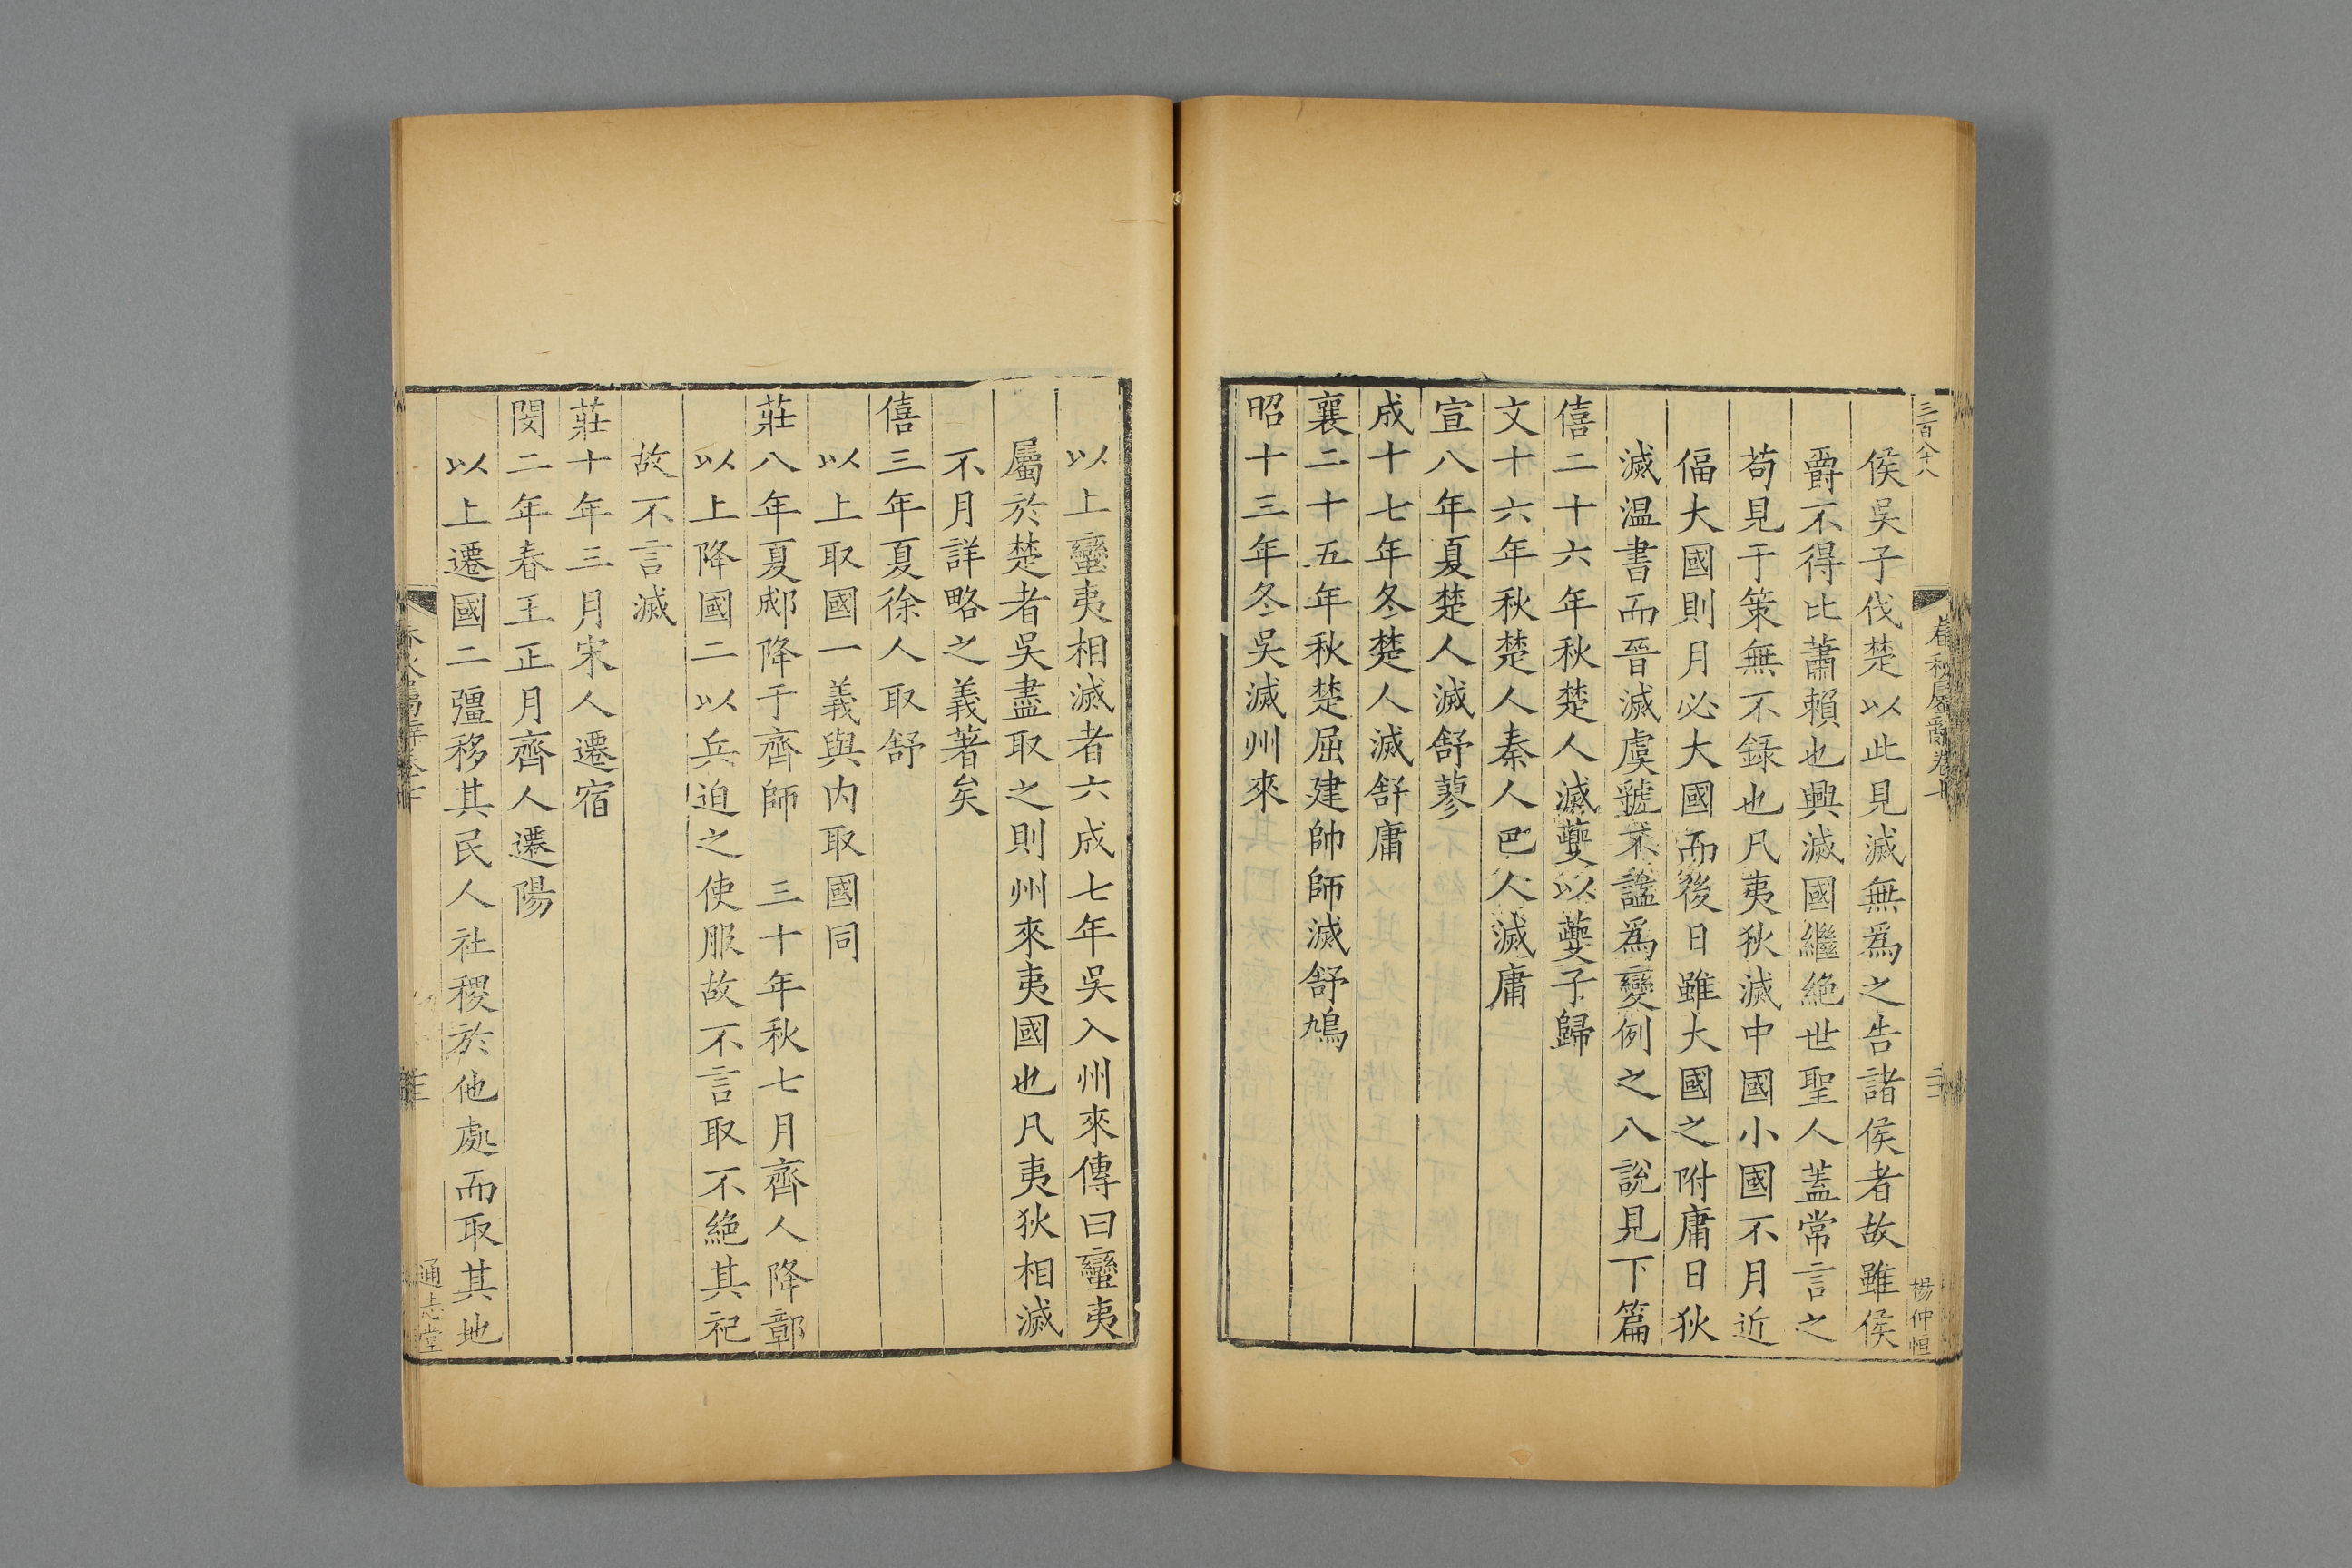 三百八十八
春秋屬辭卷十
楊仲恒
侯吳子伐楚以此見滅無爲之告諸侯者故雖侯
爵不得比蕭賴也興滅國繼絶世聖人蓋常言之
苟見于策無不録也凡夷狄滅中國小國不月近
偪大國則月必大國而後日雖大國之附庸日狄
滅温書而晉滅虞虢不諡爲變例之八說見下篇
僖二十六年秋楚人滅夔以夔子歸
文十六年秋楚人秦人巴人滅庸
宣八年夏楚人滅舒蓼
成十七年冬楚人滅舒庸
襄二十五年秋楚屈建帥師滅舒鳩
昭十三年冬吳滅州來
以上蠻夷相滅者六成七年吳入州來傳曰蠻夷
屬於楚者吳盡取之則州來夷國也凡夷狄相滅
不月詳略之義著矣
僖三年夏徐人取舒
以上取國一義與内取國同
莊八年夏郕降于齊師 三十年秋七月齊人降鄣
以上降國二以兵迫之使服故不言取不絶其祀
故不言滅
莊十年三月宋人遷宿
閔二年春王正月齊人遷陽
以上遷國二彊移其民人社稷於他處而取其地
通志堂